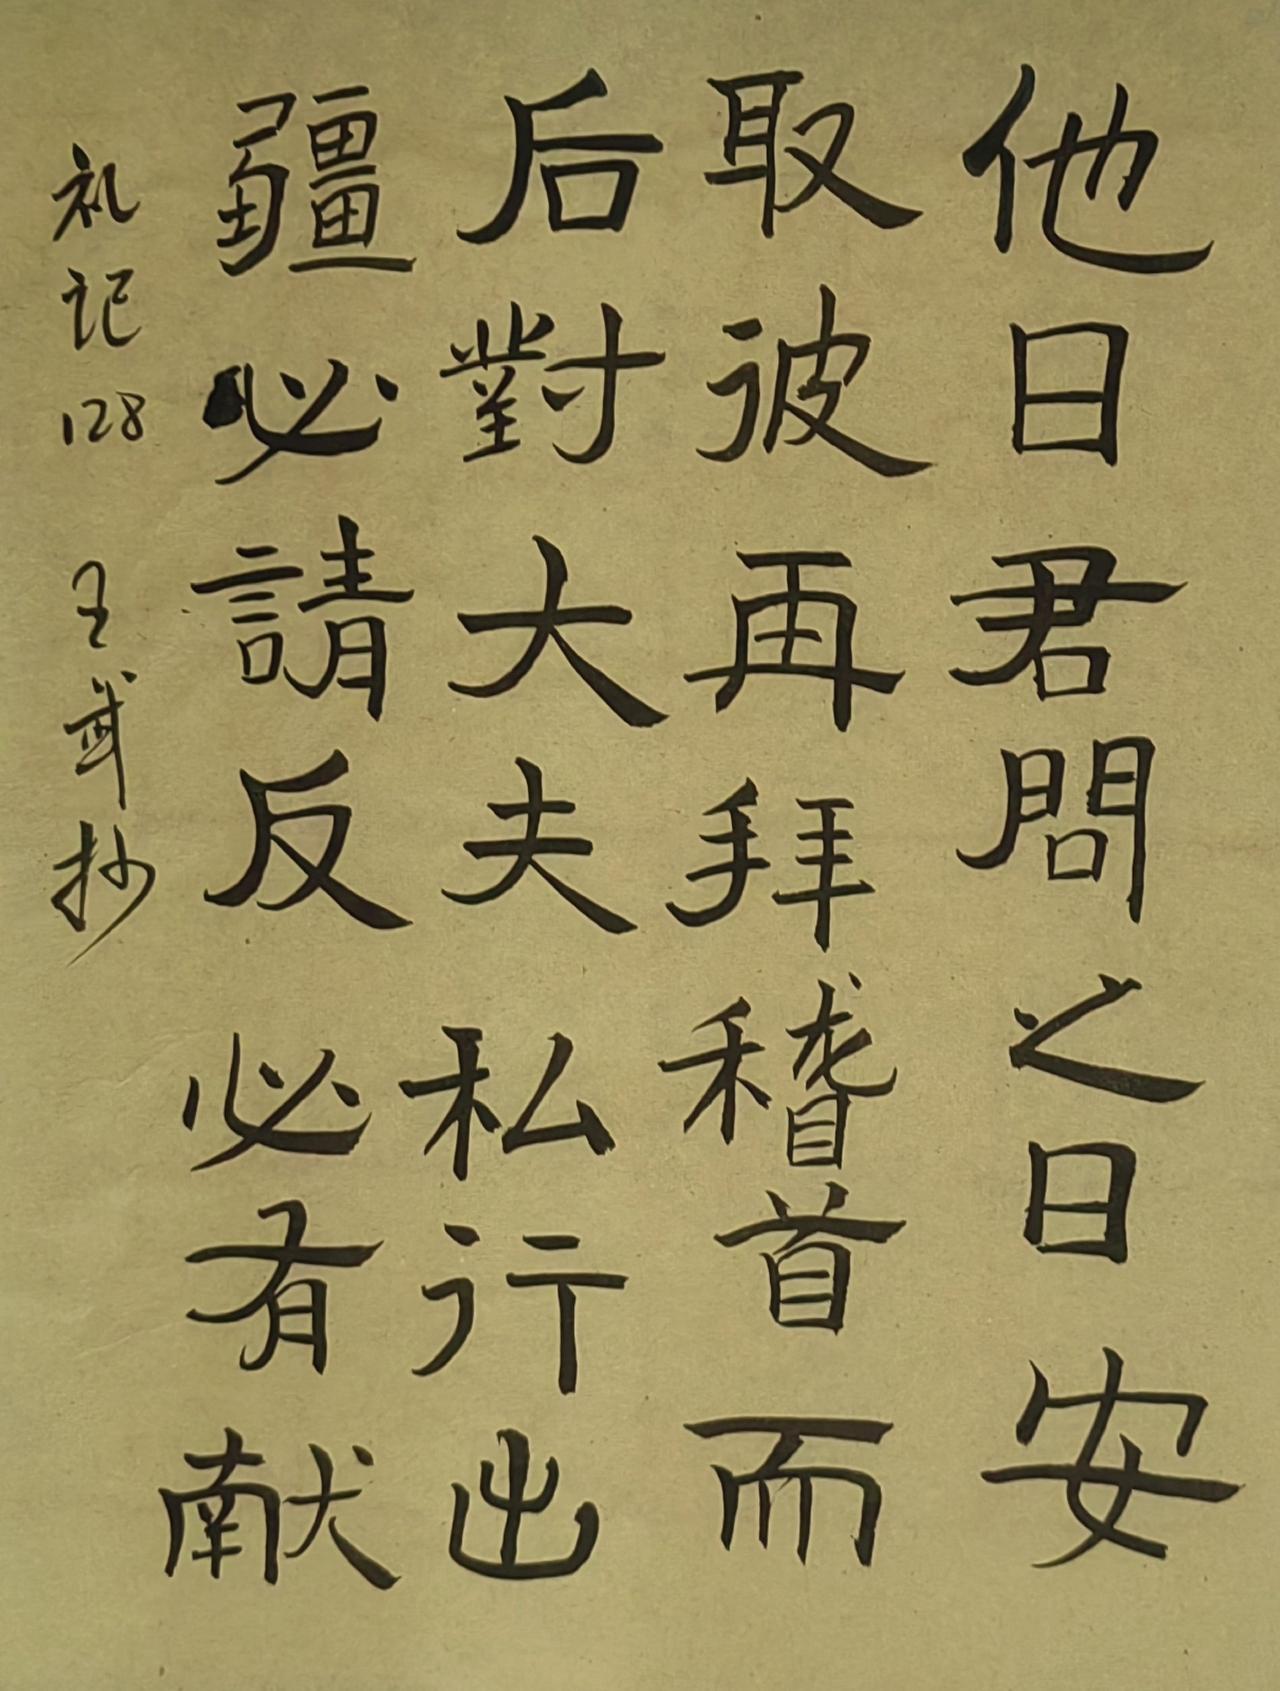 他日君問之曰安
取彼再拜稽首而
后對大夫私行出
疆必請反必有献
礼记128 王武抄